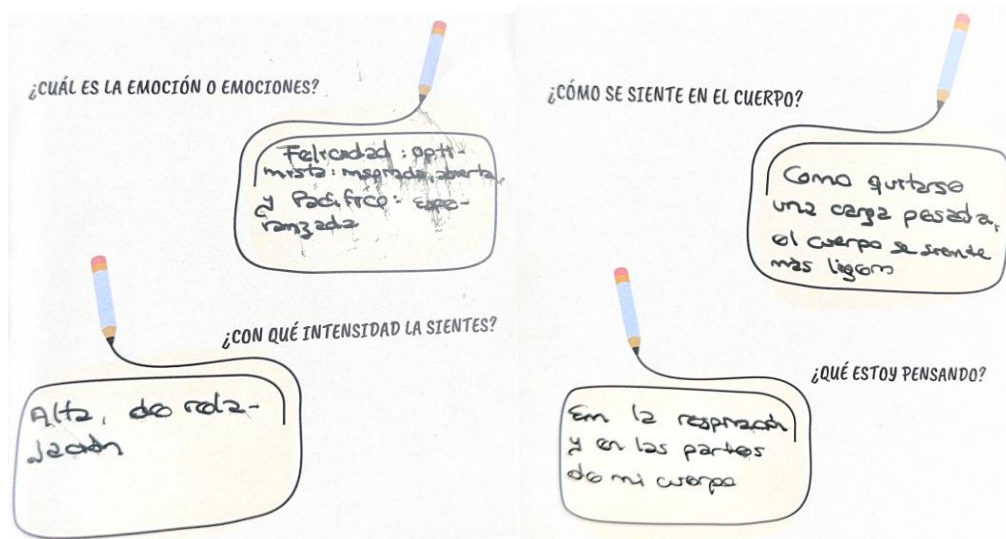 ¿CUÁL ES LA EMOCIÓN O EMOCIONES?
Felicidad: opti-
mista: inspirada, abierta,
y Pacífico: espe-
ranzada
¿CON QUÉ INTENSIDAD LA SIENTES?
Alta, de rela-
jación
¿CÓMO SE SIENTE EN EL CUERPO?
Como quitarse
una carga pesada,
el cuerpo se siente
más ligero
¿QUÉ ESTOY PENSANDO?
En la respiración
y en las partes
de mi cuerpo